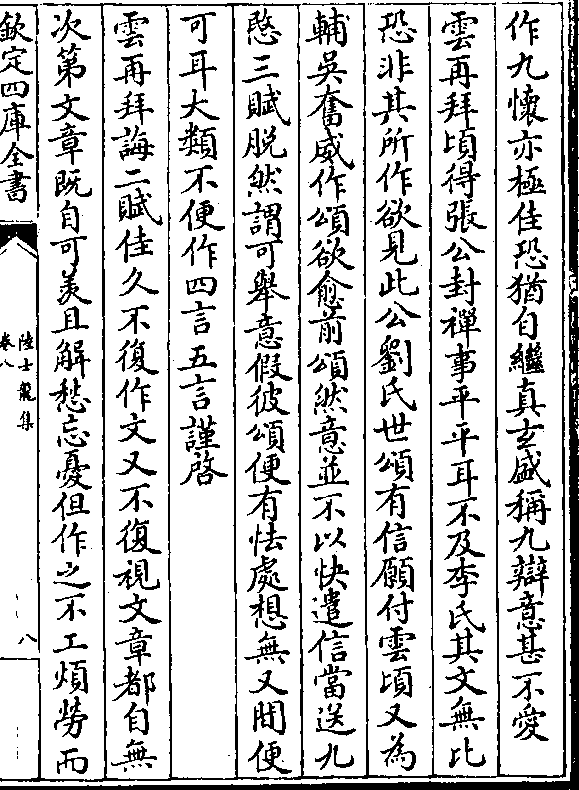 作九懷亦極佳恐猶自繼真玄盛稱九辯意甚不愛
雲再拜頃得張公封禪事平平耳不及李氏其文無比
恐非其所作欲見此公劉氏世頌有信願付雲頃又為
輔吳奮威作頌欲愈前頌然意並不以快遣信當送九
愍三賦脱然謂可舉意假彼頌便有怯處想無又閒便
可耳大類不便作四言五言謹啓
雲再拜誨二賦佳久不復作文又不復視文章都自無
次第文章既自可羙且解愁忘憂但作之不工煩勞而
欽定四庫全書
陸士龍集
卷八
八